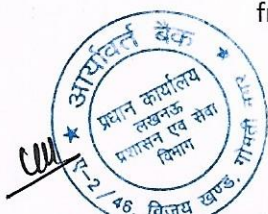 fr
आर्यावर्त बैंक
प्रधान कार्यालय
लखनऊ
प्रशासन एवं सेवा
विभाग
ए-2/46, विजय खण्ड, गोमती नगर